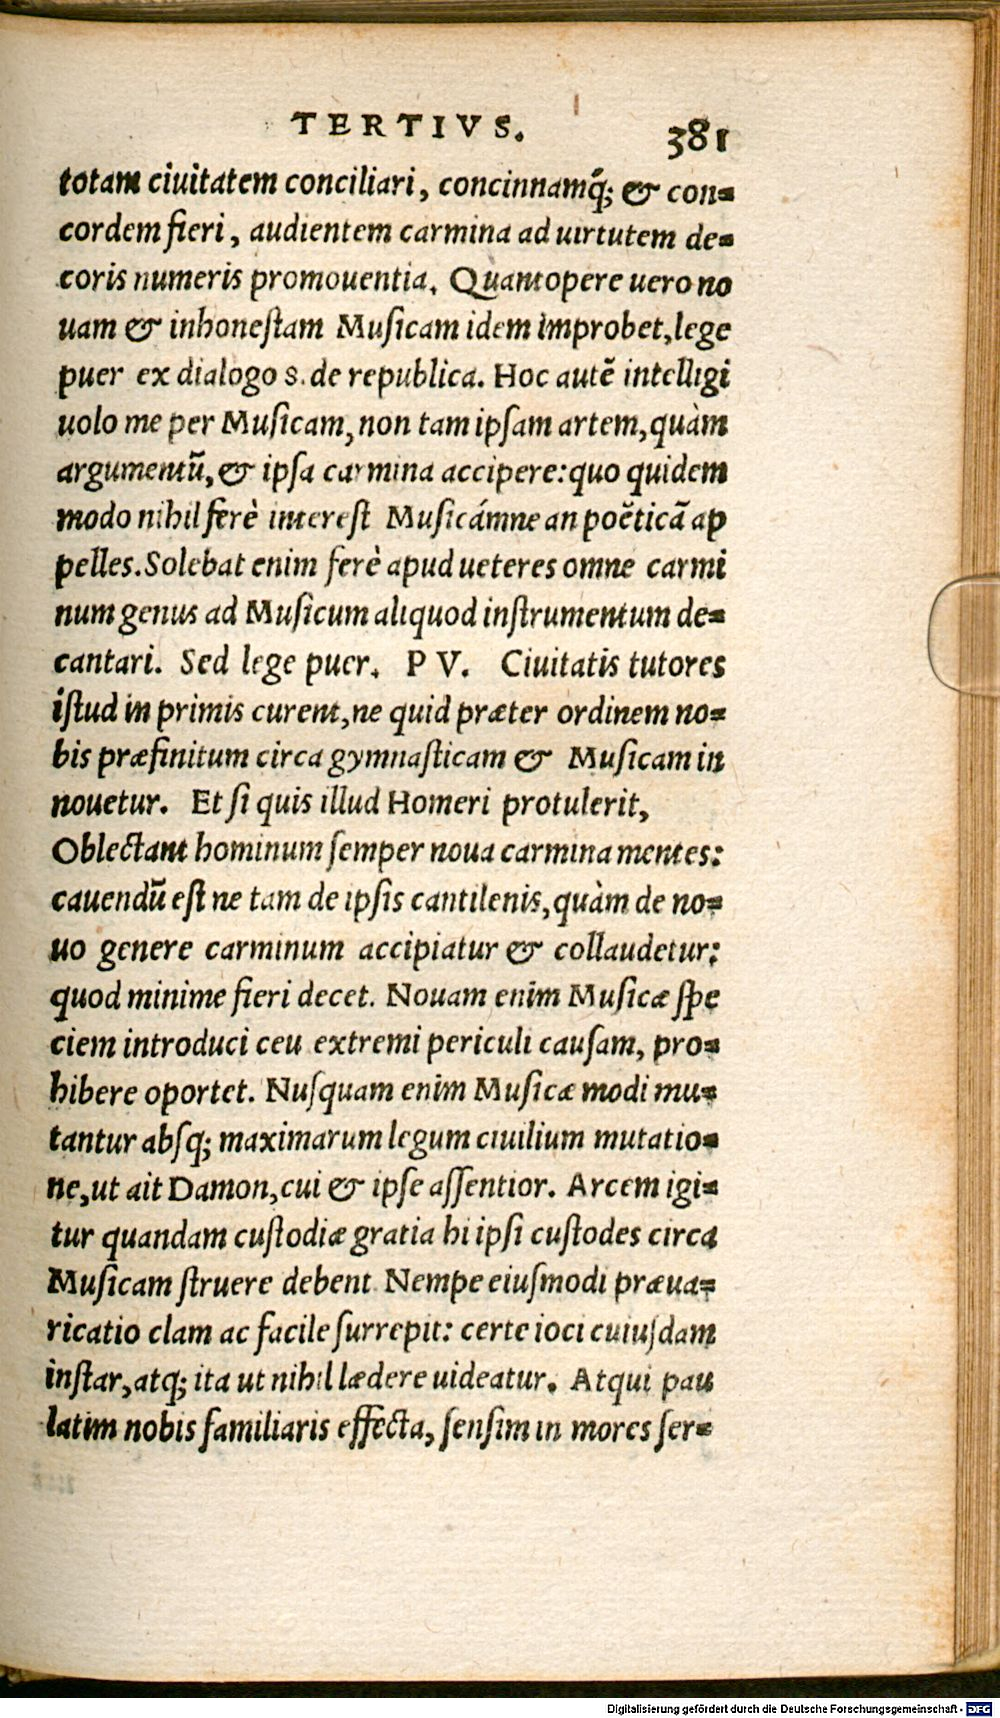 TERTIVS. 381
totam ciuitatem conciliari, concinnamq́; & con-
cordem fieri, audientem carmina ad uirtutem de-
coris numeris promouentia. Quantopere uero no
uam & inhonestam Musicam idem improbet, lege
puer ex dialogo s. de republica. Hoc autē intelligi
uolo me per Musicam, non tam ipsam artem, quàm
argumentū, & ipsa carmina accipere: quo quidem
modo nihil ferè interest Musicámne an poëticā ap
pelles. Solebat enim ferè apud ueteres omne carmi
num genus ad Musicum aliquod instrumentum de-
cantari. Sed lege puer. P V. Ciuitatis tutores
istud in primis curent, ne quid præter ordinem no-
bis præfinitum circa gymnasticam & Musicam in
nouetur. Et si quis illud Homeri protulerit,
Oblectant hominum semper noua carmina mentes:
cauendū est ne tam de ipsis cantilenis, quàm de no-
uo genere carminum accipiatur & collaudetur:
quod minime fieri decet. Nouam enim Musicæ spe
ciem introduci ceu extremi periculi causam, pro-
hibere oportet. Nusquam enim Musicæ modi mu-
tantur absq; maximarum legum ciuilium mutatio-
ne, ut ait Damon, cui & ipse assentior. Arcem igi-
tur quandam custodiæ gratia hi ipsi custodes circa
Musicam struere debent. Nempe eiusmodi præua-
ricatio clam ac facile surrepit: certe ioci cuiusdam
instar, atq; ita ut nihil lædere uideatur. Atqui pau
latim nobis familiaris effecta, sensim in mores ser-
Digitalisierung gefördert durch die Deutsche Forschungsgemeinschaft - DFG